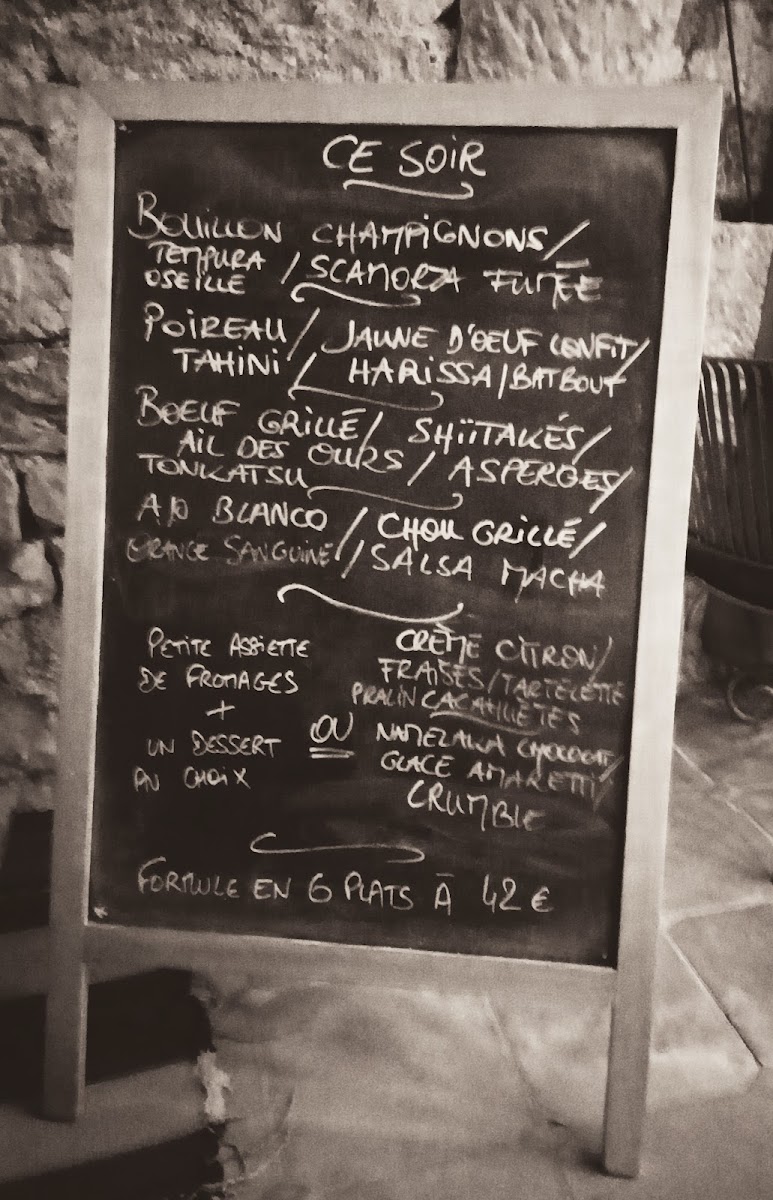 CE SOIR
BOUILLON CHAMPIGNONS/
TEMPURA
OSEILLE / SCAMORZA FUMÉE
POIREAU/ JAUNE D'OEUF CONFIT/
TAHINI / HARISSA/BATBOUT
BOEUF GRILLÉ/ SHIITAKÉS/
AIL DES OURS / ASPERGES/
TONKATSU
AJO BLANCO / CHOU GRILLÉ/
ORANGE SANGUINE / SALSA MACHA
PETITE ASSIETTE
DE FROMAGES
+
UN DESSERT
AU CHOIX
CRÈME CITRON/
FRAISES/TARTELETTE
PRALIN CACAHUÈTES
OU
NAMELAKA CHOCOLAT/
GLACE AMARETTI/
CRUMBLE
FORMULE EN 6 PLATS À 42 €